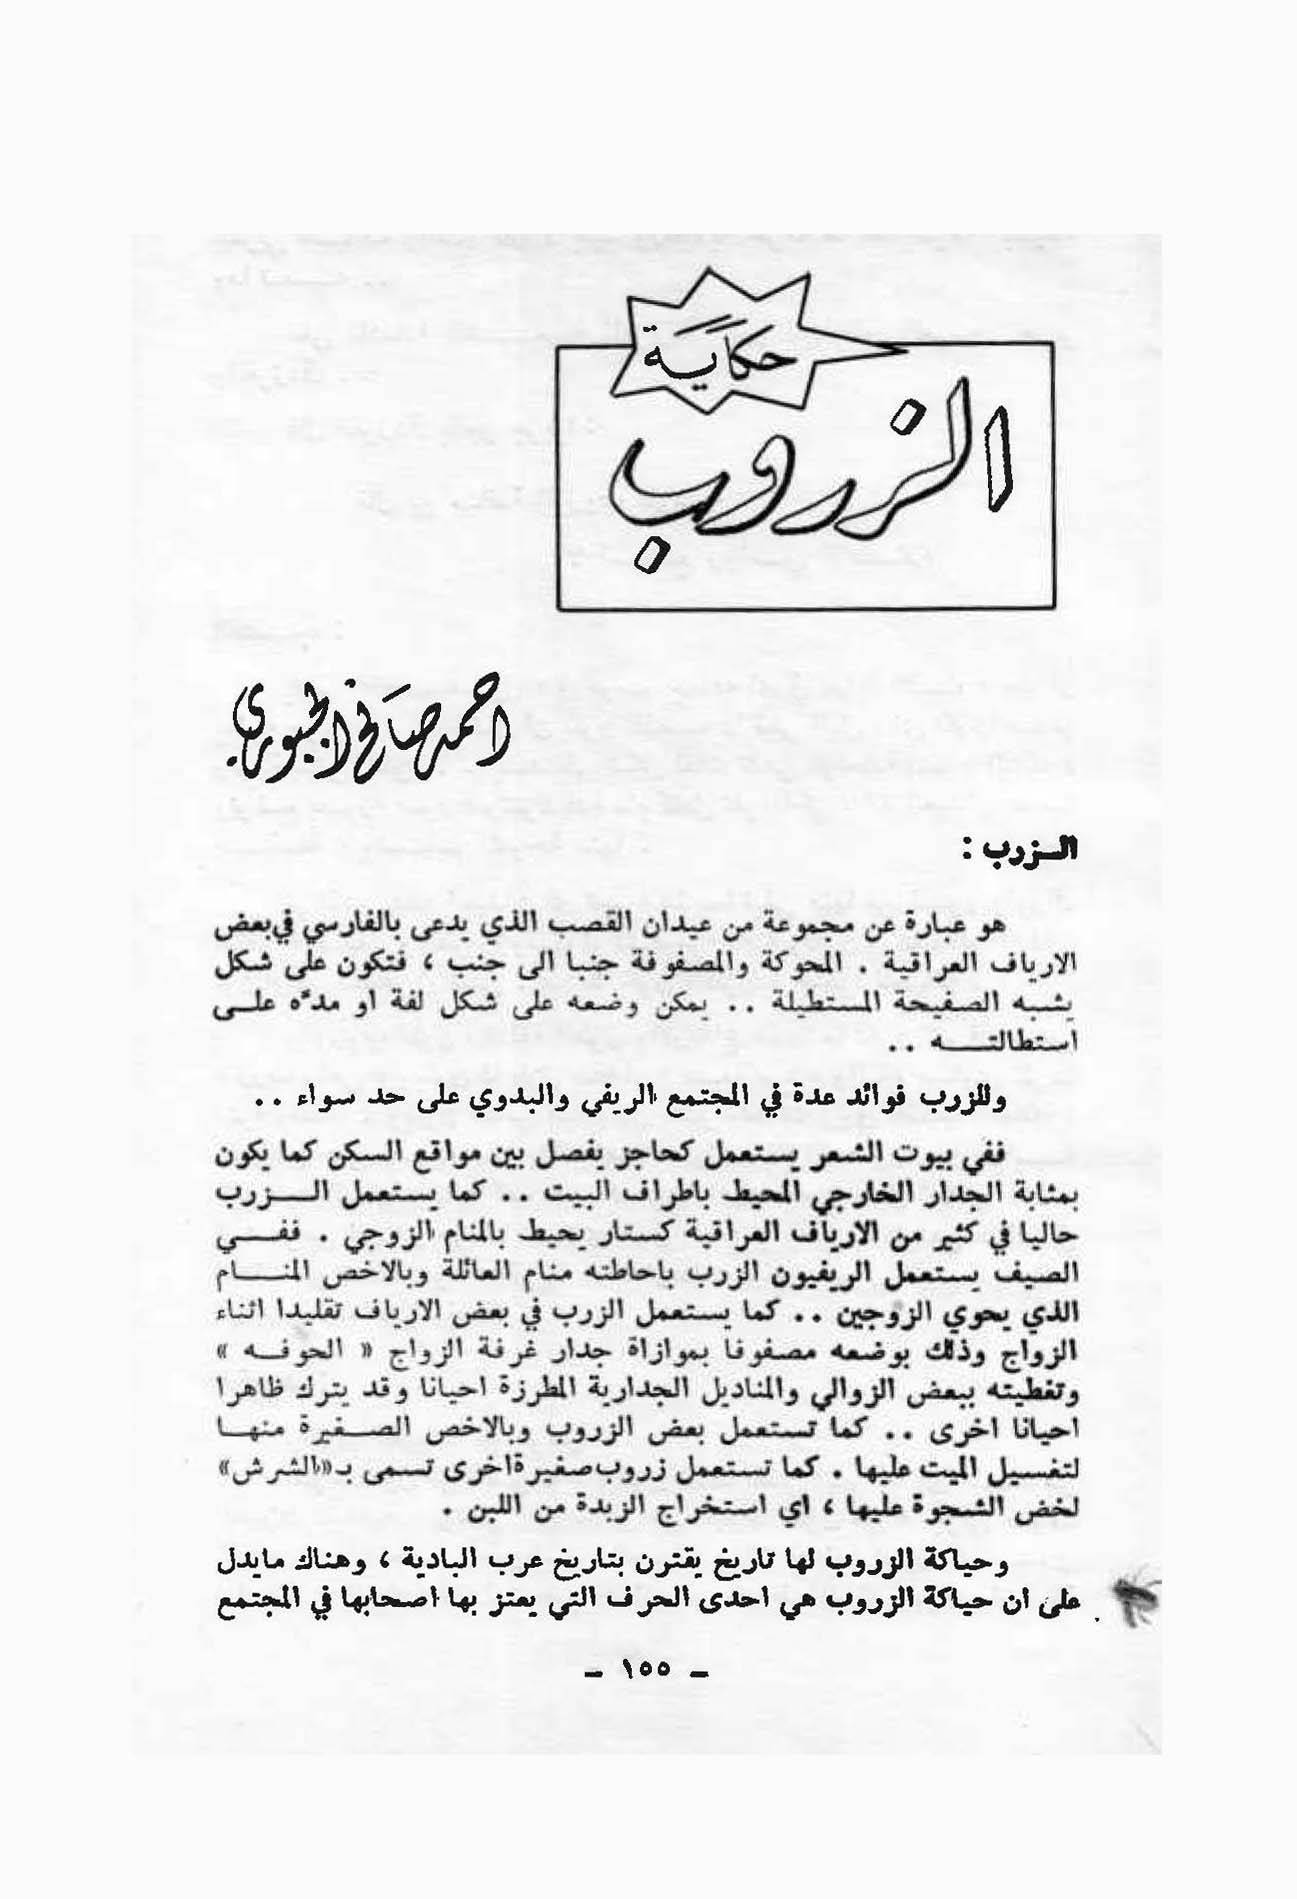 حكاية
الزروب
احمد صالح الجبوري
الـزرب :
هو عبارة عن مجموعة من عيدان القصب الذي يدعى بالفارسي في بعض
الارياف العراقية . المحوكة والمصفوفة جنبا الى جنب ، فتكون على شكل
يشبه الصفيحة المستطيلة .. يمكن وضعه على شكل لفة او مدّه علـى
استطالتـه ..
وللزرب فوائد عدة في المجتمع الريفي والبدوي على حد سواء ..
ففي بيوت الشعر يستعمل كحاجز يفصل بين مواقع السكن كما يكون
بمثابة الجدار الخارجي المحيط باطراف البيت .. كما يستعمل الـزرب
حاليا في كثير من الارياف العراقية كستار يحيط بالمنام الزوجي . ففـي
الصيف يستعمل الريفيون الزرب باحاطته منام العائلة وبالاخص المنـام
الذي يحوي الزوجين .. كما يستعمل الزرب في بعض الارياف تقليدا اثناء
الزواج وذلك بوضعه مصفوفا بموازاة جدار غرفة الزواج « الحوفـه »
وتغطيته ببعض الزوالي والمناديل الجدارية المطرزة احيانا وقد يترك ظاهرا
احيانا اخرى .. كما تستعمل بعض الزروب وبالاخص الصـغيرة منهـا
لتغسيل الميت عليها . كما تستعمل زروب صغيرة اخرى تسمى بـ«الشرش»
لخض الشجوة عليها ، اي استخراج الزبدة من اللبن .
وحياكة الزروب لها تاريخ يقترن بتاريخ عرب البادية ، وهناك مايدل
على ان حياكة الزروب هي احدى الحرف التي يعتز بها اصحابها في المجتمع
- ١٥٥ -